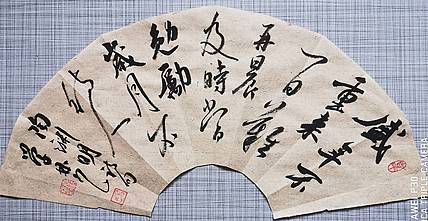 盛年不
重來
一日難
再晨
及時當
勉勵
歲月不
待人
陶淵明
AWEI P30
A TRIPLE CAMERA